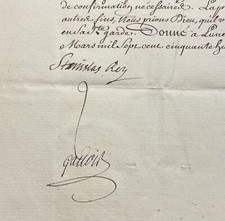 de confirmation necessaire. La p
autre fins, Nous prions Dieu, qu'il v
en sa S.te garde. Donné a Lune
Mars mil Sept cent cinquante h
Stanislas Roy